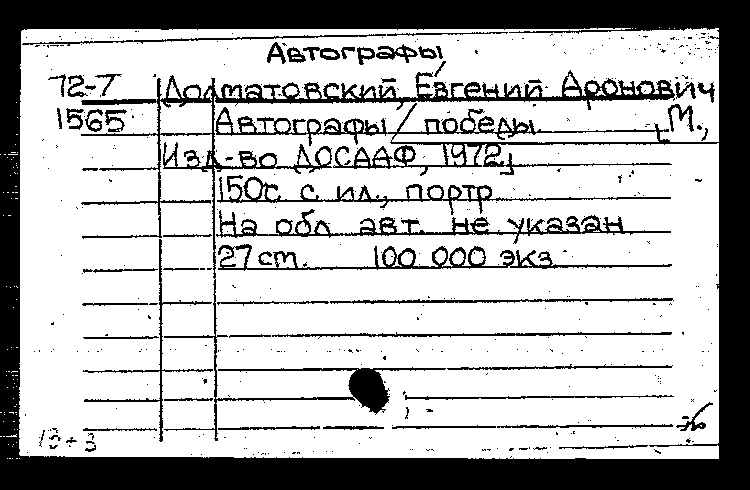 Автографы
72-7 Долматовский, Евгений Аронович
1565 Автографы / победы. [М.,
Изд-во ДОСААФ, 1972]
150с. с ил., портр.
На обл. авт. не указан
27 см. 100 000 экз.